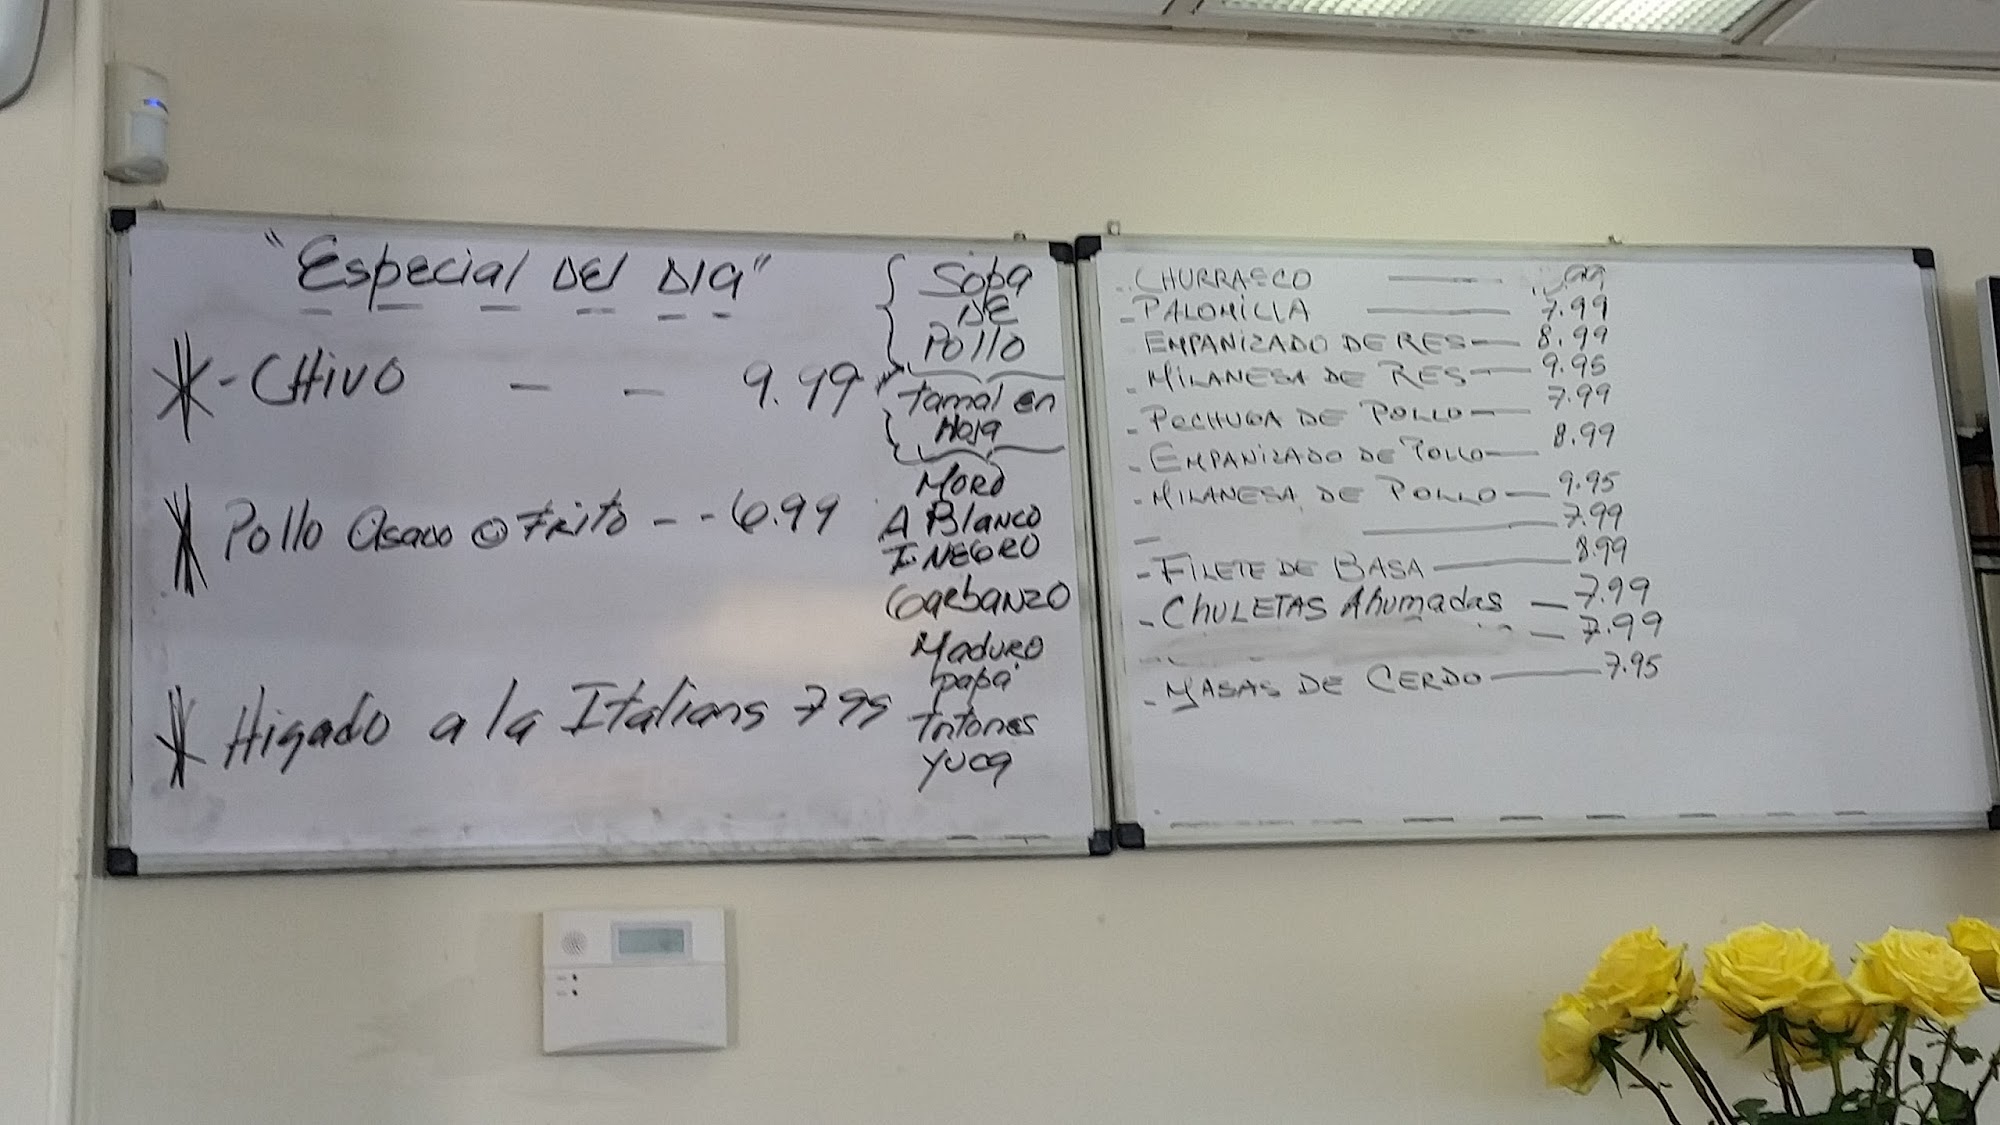 "Especial DEl DIA"
*-CHIVO - - 9.99
* Pollo Asado O FRITO - - 6.99
* Higado a la Italiana 7 99
Sopa
DE
Pollo
tamal en
Hoja
MORO
A BlANCO
F. NEGRO
GaRbANZO
MADURO
papa
YUCA
CHURRASCO
- PALOMILLA — 7.99
EMPANIZADO DE RES — 8.99
- MILANESA DE RES — 9.95
- PECHUGA DE POLLO — 7.99
- EMPANIZADO DE POLLO — 8.99
- MILANESA DE POLLO — 9.95
- — 7.99
- FILETE DE BASA — 8.99
- CHULETAS Ahumadas — 7.99
— 7.99
- MASAS DE CERDO — 7.95